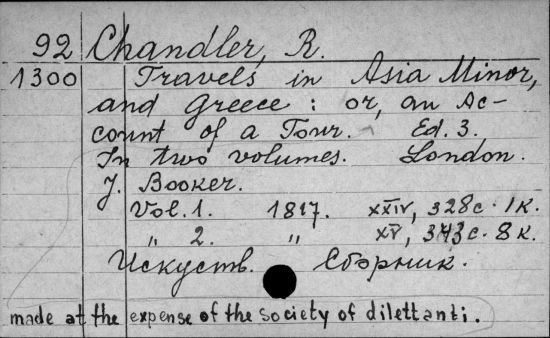 92 Chandler, R.
1300 Travels in Asia Minor,
and Greece : or, an Ac-
count of a Tour. Ed. 3.
In two volumes. London.
J. Booker.
Vol. 1. 1817. XXIV, 328 c. 1 K.
„ 2. „ XV, 343 c. 8 K.
Искуств. Сборник.
made at the expense of the society of dilettanti.